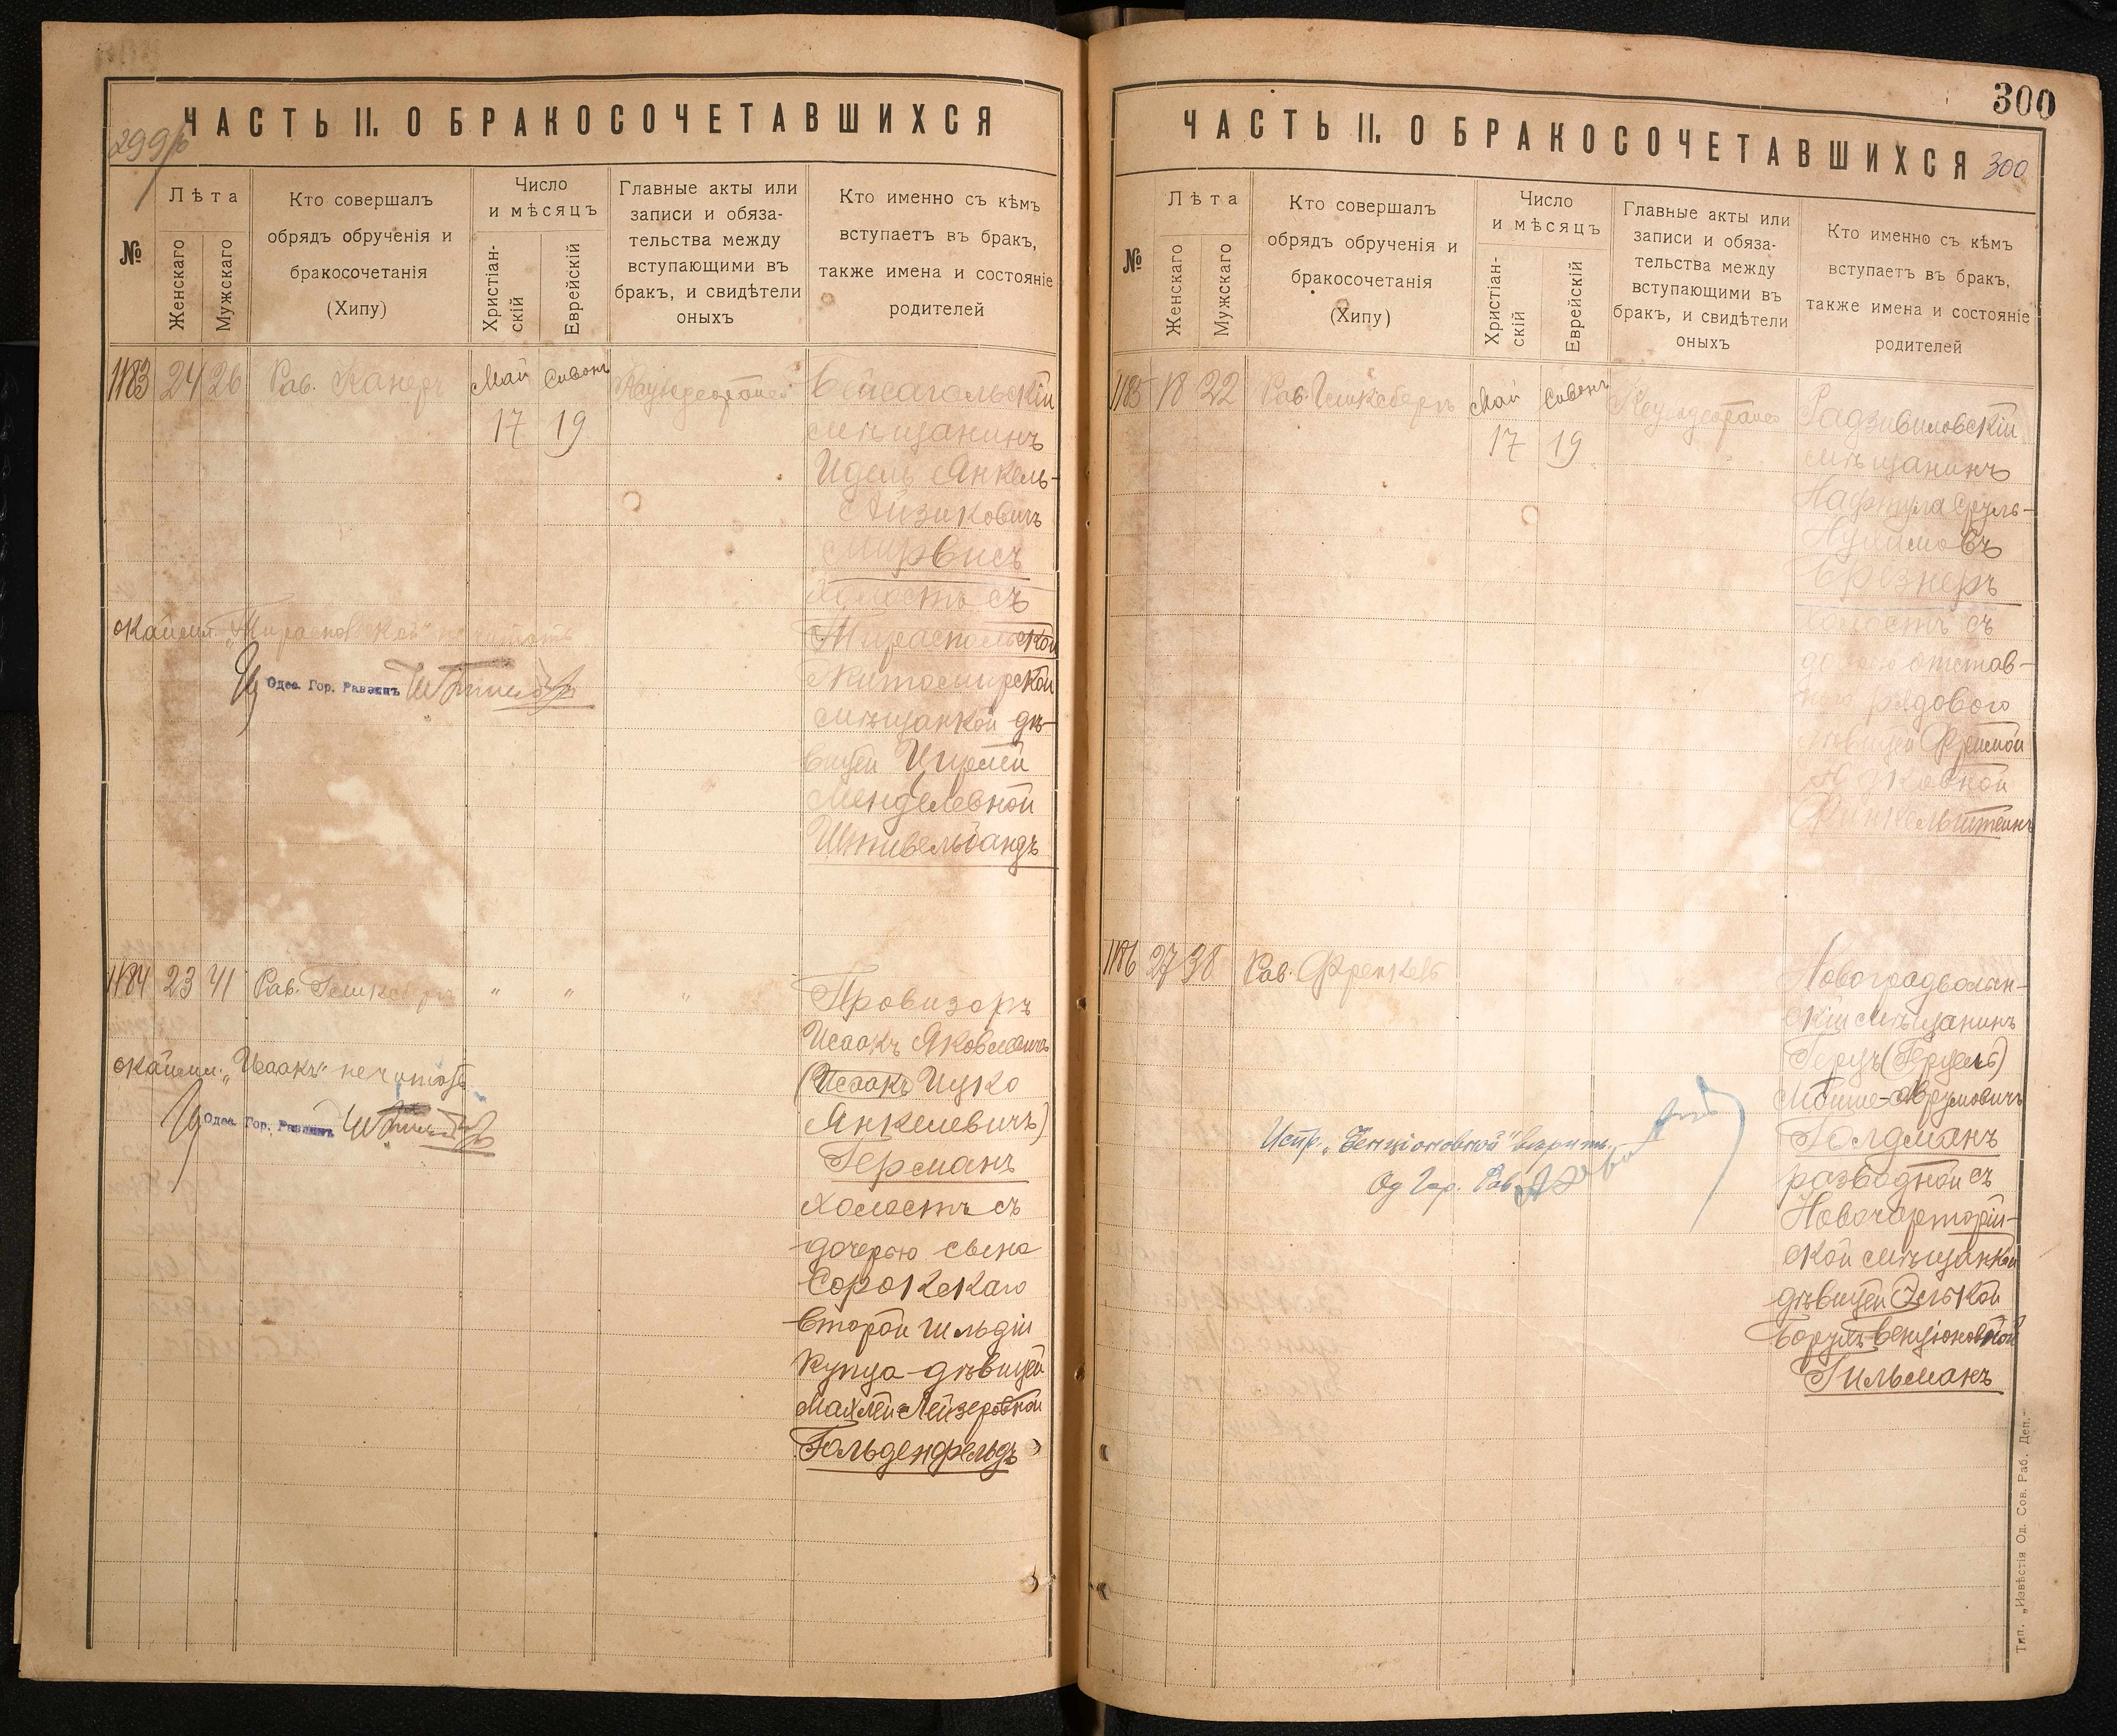 ЧАСТЬ II. О БРАКОСОЧЕТАВШИХСЯ
299
№
Лѣта
Женскаго
Мужскаго
Кто совершалъ
обрядъ обрученія и
бракосочетанія
(Хипу)
Число
и мѣсяцъ
Христіан-
скій
Еврейскій
Главные акты или
записи и обяза-
тельства между
вступающими въ
бракъ, и свидѣтели
оныхъ
Кто именно съ кѣмъ
вступаетъ въ бракъ,
также имена и состояніе
родителей
1183 24 26 Рав. Канеръ Май Сивонъ
17 19
Бейсагольскій
мѣщанинъ
Идель Янкель-
Айзиковичъ
Мирвисъ
холостъ съ
Тираспольской
Житомирской
мѣщанкой дѣ-
вицей Цирлей
Менделевной
Штивельбандъ
Окаймл. „Тираспольской" не читать
Одес. Гор. Раввинъ
1184 23 41 Рав. Гомксберъ „ „ „
Провизоръ
Исаакъ Яковлевичъ
(Исаакъ Ицко
Янкелевичъ)
Германъ
холостъ съ
дочерью сына
Сорокскаго
второй гильдіи
купца дѣвицей
Махлей Лейзеровной
Гольденфельдъ
Окаймл. „Исаакъ" не читать
Одес. Гор. Раввинъ
300
ЧАСТЬ II. О БРАКОСОЧЕТАВШИХСЯ 300
№
Лѣта
Женскаго
Мужскаго
Кто совершалъ
обрядъ обрученія и
бракосочетанія
(Хипу)
Число
и мѣсяцъ
Христіан-
скій
Еврейскій
Главные акты или
записи и обяза-
тельства между
вступающими въ
бракъ, и свидѣтели
оныхъ
Кто именно съ кѣмъ
вступаетъ въ бракъ,
также имена и состояніе
родителей
1185 18 22 Рав. Май Сивонъ
17 19
Радзивиловскій
мѣщанинъ
Нафтула Сруль-
Нухимовъ
Брезнеръ
холостъ съ
дочерью отстав-
ного рядового
дѣвицей Фримой
Финкельштейнъ
1186 27 38 Рав. Френкель
Новоградволын-
скій мѣщанинъ
Герцъ (Герцель)
Мойше-Аврумовичъ
Голдманъ
разводной съ
Новочарторій-
ской мѣщанкой
дѣвицей Элькой
Борухъ-Бенціоновной
Гильманъ
Испр. „Бенціоновной" вѣрить.
Од. Гор. Рав.
Тип. „Извѣстія Од. Сов. Раб. Деп."